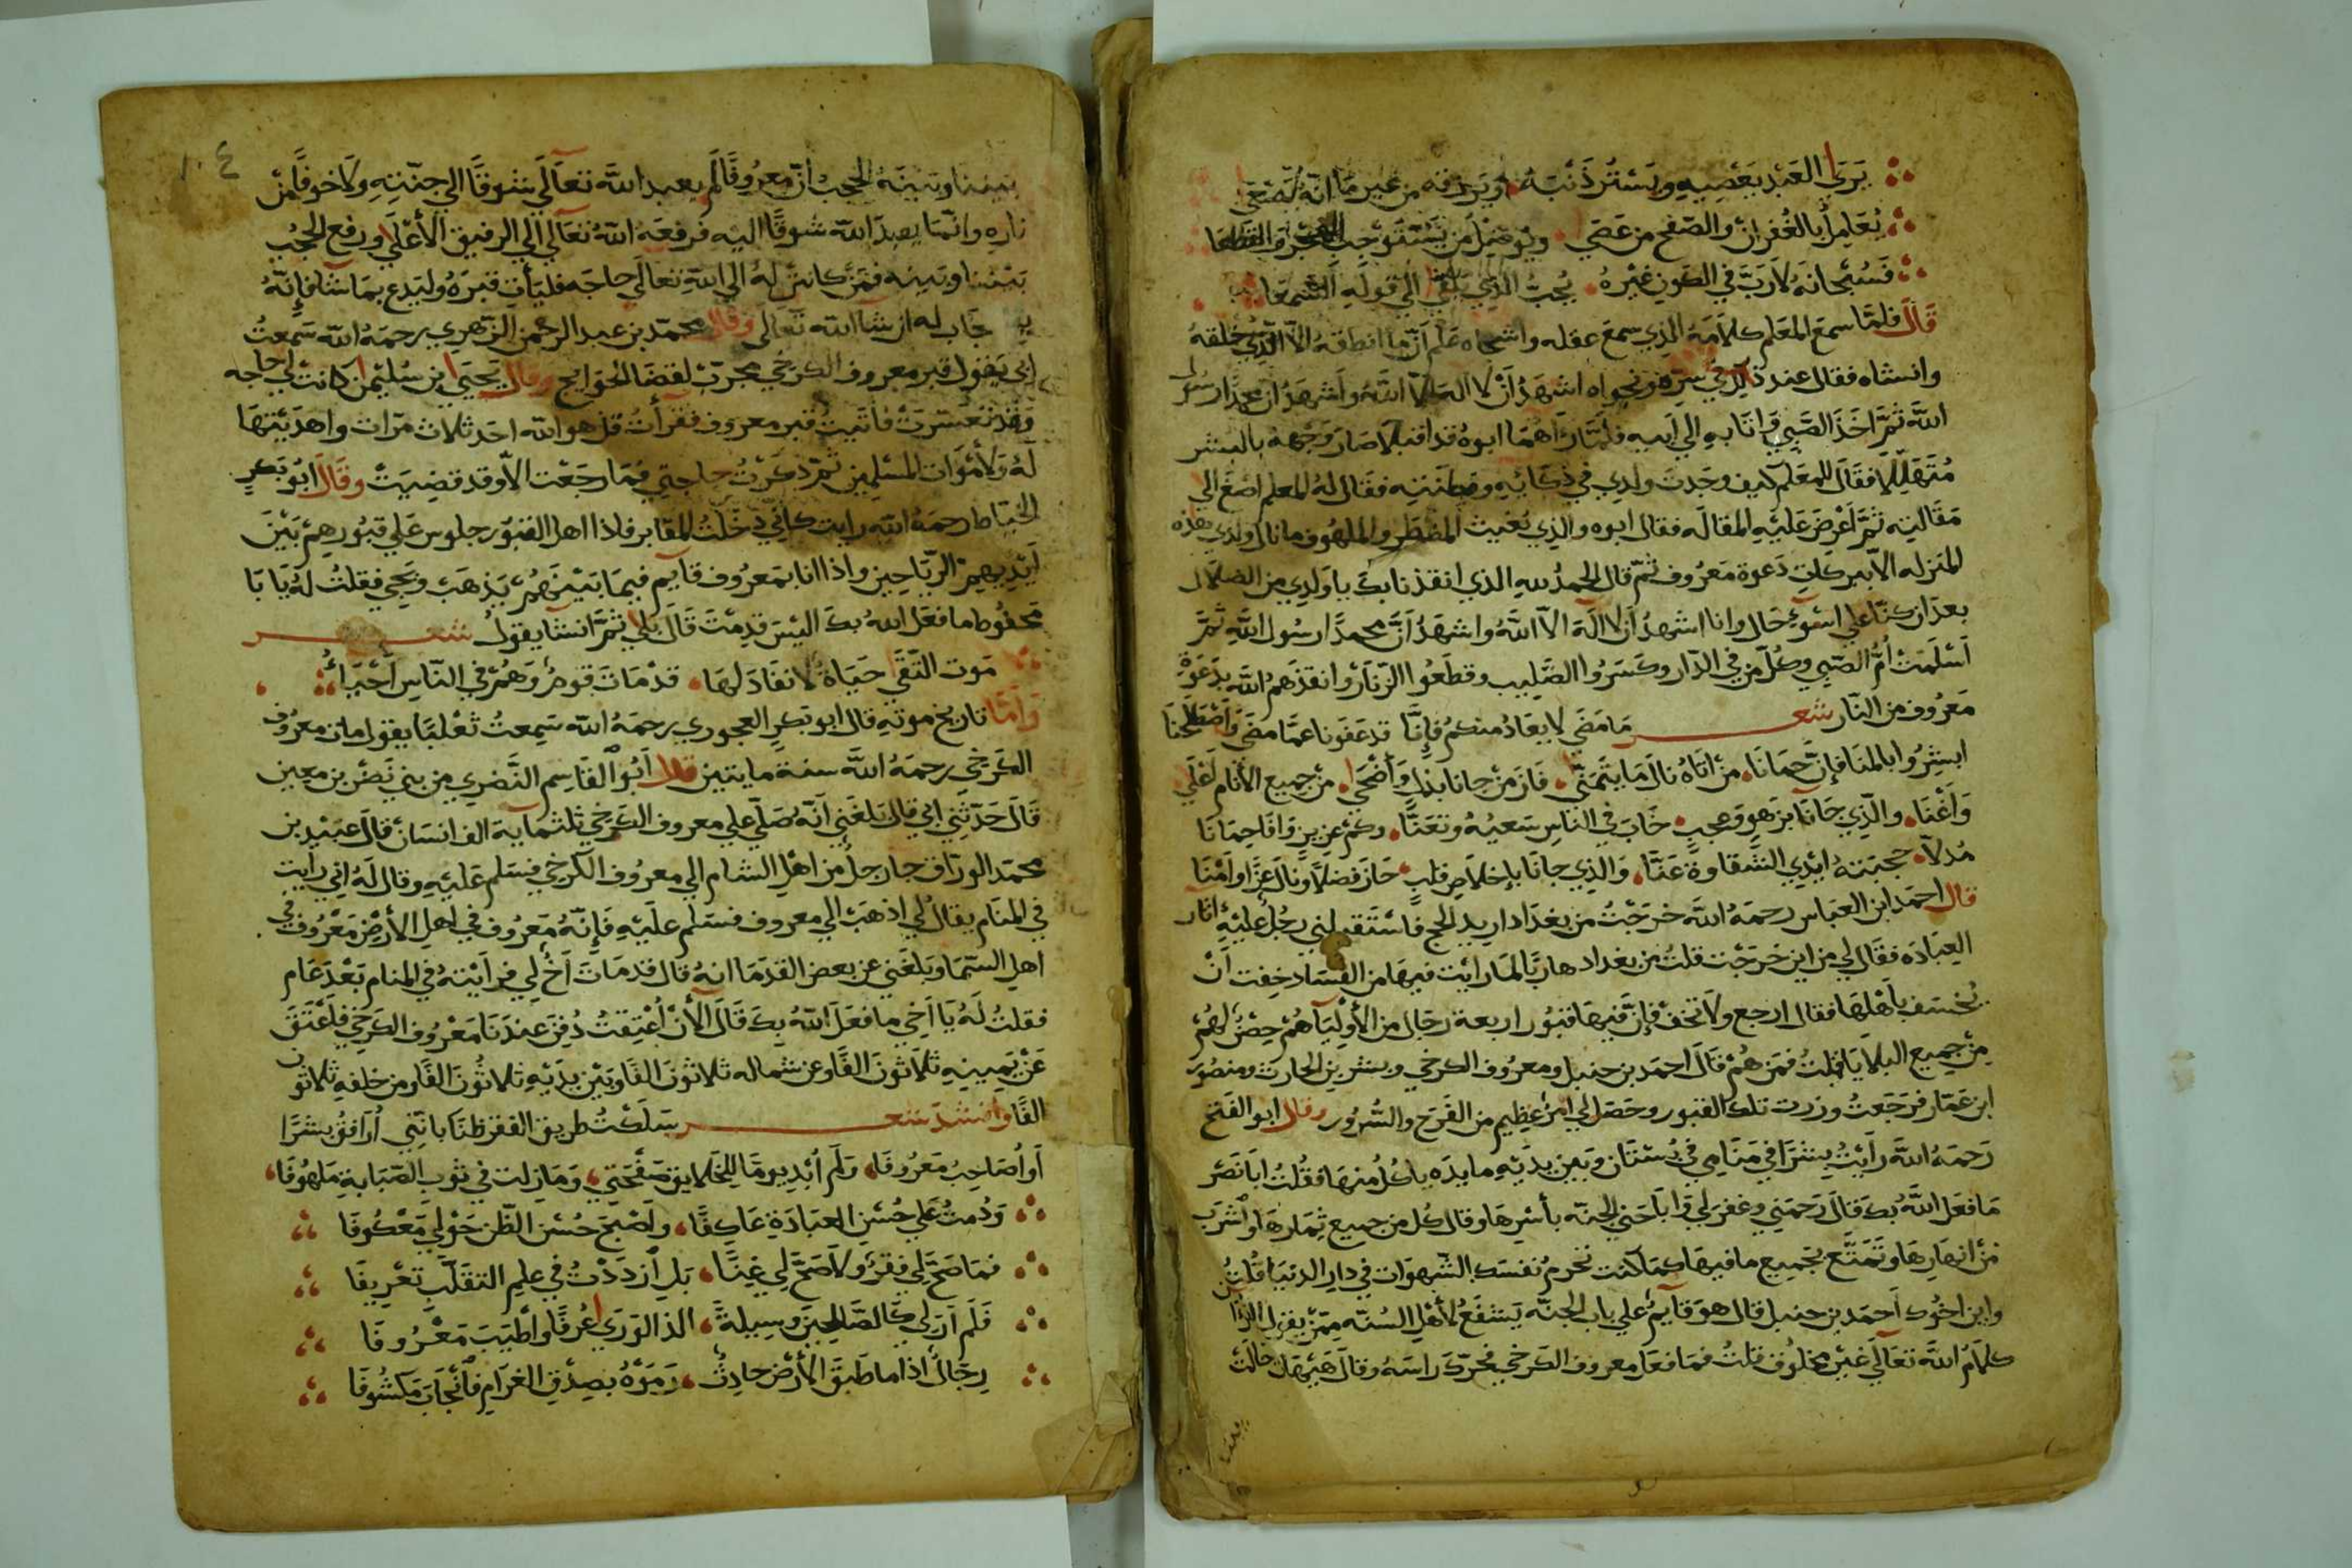 يَرَى العَبْدَ يَعْصِيهِ ويَسْتُر ذَنْبَهُ ويَرزقه من غير مَا انّهُ
يُعَامِلُ بالغُفران والصّفح من عَصَى من يَسْتَوْجِبُ
فَسُبْحانَهُ لاَ رَبَّ في الكون غَيْرهُ يُجبُ الذي الي قوله
قَالَ فلمَّا سمعَ المعَلم كلاَمَهُ الذي سمعَ عقله واشجاه عَلم اَنّ ما انطقهُ الاّ الّذي خلقهُ
وانشاه فقال عند ذلك في سرّه ونجواه اشهَدُ اَنْ لا اله الا اللهُ واَشهَدُ ان محمدًا رسُول
اللهِ ثمَّ اخَذَ الصَّبي وَاتَا بهِ الي اَبيه فلمَّا رءاهُما ابوهُ قد اقبلاَ صَارَ وَجهه بالبشر
مُتَهَلِّلاً فقَال للمعَلم كيف وجَدتَ ولدي في ذكَائهِ وفطنتِه فقَال لهُ المعلم اصغَ الي
مَقالتِه ثمَّ اَعْرضَ عَليْهِ المقالَه فقال ابوه والذي يُغيث المضطَر والملهُوف ما نال ولدي هذه
المنزله الاّ ببركات دَعوة مَعرُوف ثمّ قال الحمدُ للهِ الذي انقذنا بكَ يا وَلدي من الضلَال
بعدَ ان كنّا علي اسْوءِ حَال وانا اشهدُ اَن لا الَهَ الاّ اللهُ واشهَدُ اَنَّ محمدًا رسُول اللهِ ثمَّ
اَسْلمَتْ اُمُّ الصّبي وكُلّ من في الدّار وكسَرُوا الصَّليب وقطَعُوا الزّنارَ وانقذَهمُ اللهُ بدَعْوَةِ
مَعرُوف من النّار شعر مَا مَضَي لا يعَادُ منكمُ فإنَّا قد عَفَونا عمّا مضَي وَاصْطَلحنَا
ابشِرُوا بالمنَا فإنَّ حِمَانَا من اَتَاهُ نالَ مَا يتَمَنّي فَازَ مَنْ جانا بذلٍ وَاَضْحَي من جميع الأنام اَعْلَي
وَاَغْنَا والّذي جَانَا بزهوٍ وَعجبٍ خَابَ في النّاسِ سَعيُهُ وتعَنّا وكم عزيزٍ وَافَا حِمَانَا
مُدلاًّ حجبَتهُ ايَدي الشّقاوَة عَنّا وَالذي جانَا باِخلاَصِ قلبٍ حَازَ فضلاً ونَال عِزًّا واَمْنَا
قال احمَد ابن العبَاس رحمَهُ اللهُ خرَجْتُ من بغدَاد اريد الحج فاسْتَقبلني رجُل عَليْهِ اثار
العِبَادَه فقَال لي من اين خَرَجْت قلتُ من بغداد هاربًا لمَا رايْت فيهَا من الفسَاد خِفت اَنْ
يُخسَف بأهْلهَا فقال ارجع ولاَ تخف فإنَّ فيهَا قبُور اربعة رجَال من الأولِيَا هُمْ حِصْنٌ لهُمْ
مِنْ جميع البلايَا قلتُ فمَن هُمْ قَالَ احمَد بن حنبل ومعرُوف الكرخي وبشر بن الحارث ومنصُور
ابن عمّار فرَجَعتُ وزرت تلك القبُور وحَصَل لي اَمرٌ عظِيم من الفَرَح والسُّرُور وقال ابو الفَتح
رَحمَهُ اللهُ رَأيْتُ بِشرًا في مَنَامي في بُسْتَان وَبَين يدَيْهِ مايدَه ياكُلُ منهَا فقُلتُ ابَا نَصَر
مَا فعَلَ اللهُ بكَ قَالَ رَحمَني وغفرَ لي وَابَاحَني الجنّه بأسْرِهَا وقَال كُل من جميع ثِمَارهَا واشرَب
منْ انهَارِهَا وتَمَتَّع بجَميع ما فيهَا كمَا كنت تحرمُ نفسَك الشّهوَات في دَارِ الدنيَا قلتُ
واين اخُوك اَحمَد بن حنبل قال هوَ قَايمٌ علي باب الجنّه يَشفَعُ لأهْلِ السُنّه ممّنْ يقول القران
كلاَمُ اللهِ تعَالَي غَيْر مخلُوق قلتُ فمَا فعَل معروف الكَرخي فحَرّكَ راسَهُ وقالَ هَيْهَات حَالتْ
بيننا وبَينَهُ الحجبُ انّ معرُوفًا لَم يعبد اللهَ تعَالَي شوقًا الي جنّتهِ ولاَ خوفًا منْ
نارهِ وانّمَا يعبدُ اللهَ شوقًا اليه فرفعَهُ اللهُ تعَالي الي الرفيق الأعْلَي ورفع الحجُب
بَيْننا وبَينَه فمَن كانتْ لهُ الي اللهِ تعَالَي حاجَه فليأت قبرَهُ وليَدع بمَا شَا فإنّهُ
يستجَاب له ان شَا اللهُ تعَالَي وقَال محمّد بن عبد الرحمن الزّهري رحمَهُ الله سَمعتُ
ابي يَقول قبر معروف الكرخي مجَرّب لقضَا الحَوَايج وقال يحيَي ابن سُليمَن كانتْ لي حاجه
وَقد تعسّرَتْ فاتَيتُ قبر معروف فقراتُ قل هو الله احَد ثلاث مرّات واهدَيْتهَا
لَهُ وَلأموَات المسْلمين ثمّ ذكَرْتُ حاجتي فمَا رجَعت الاّ وقد قضِيَتْ وقَالَ ابُو بَكرٍ
الخيَاط رحمَهُ الله رايت كانّي دخَلتُ المقابر فاذا اهل القبُور جلوس عَلي قبُورهِمْ بَيْنَ
اَيْدِيهمِ الريَاحين واذا انا بمَعرُوف قايم فيمَا بَيْنَهُمْ يَذهَبُ ويَجي فقلتُ لهُ يَا بَا
مَحفُوظ ما فعَل اللهُ بكَ اليْسَ قد متَّ قَالَ بَلي ثمَّ انشَا يقولُ شعر
مَوت التّقَي حَيَاةٌ لا نفَادَ لهَا قد مَاتَ قومٌ وَهُمْ في النّاس اَحْيَاءُ
وَاَمَّا تاريخ موتهِ قال ابو بَكرٍ العجوري رحمَهُ الله سَمِعتُ ثعْلبًا يقول مات معرُوف
الكَرخي رحمَهُ اللهُ سنة مايتين قال اَبُو القَاسِم النَّضري من بني نَضر بن معِين
قَالَ حَدّثني ابي قال بَلغَني اَنّهُ صَلّي علي معروف الكَرخي ثلثمايَة الف انسَان قالَ عبَيْد بن
محمّد الورّاق جا رجلٌ من اهْل الشام الي معرُوف الكَرخي فسَلم عَليْهِ وقال لَهُ اني رايت
في المنَام يقَالُ لي اذهَبْ الي معروف فسَلم عليْهِ فَإنّهُ مَعرُوف في اهل الأرْض مَعْرُوف في
اهل السّمَا وبَلغَني عن بعض القدَمَا انهُ قال قد مَاتَ اَخٌ لي فرايْتهُ في المنام بَعْدَ عَام
فقلتُ لَهُ يَا اَخي ما فعَلَ اللهُ بكَ قَالَ الأنْ اُعْتِقتُ دُفِنَ عندَنَا مَعْرُوف الكَرخي فَاَعْتقَ
عَنْ يَمِينهِ ثلاَثونَ الفًا وعن شمَاله ثلاثونَ الفًا وبَيْن يدَيْهِ ثلاثُونَ الفًا ومن خلفهِ ثلاثون
الفًا وانشدَ شعر سَلكْتُ طريقَ الفقر ظنًا بانّني اُرَافقُ بشرًا
اَو اُصَاحِبُ مَعرُوفَا وَلَم اُبْدِ يومًا للخَلايق صَفْحَتي وَمَا زلت في ثوب الصّبابَةِ مَلهُوفَا
وَدُمتُ عَلَي حُسْن العبَادَةِ عَاكِفًا واَصْبَحَ حُسْن الظّن حَوْلي مَعْكُوفَا
فمَا صَحَّ لي فقرٌ وَلاَ صَحَّ لي غِنًا بَلِ اَزدَدْتُ في علم التقَلّب تعْرِيفَا
فَلَم اَرَ لي كالصَّالحينَ وسِيلَةً الذ الوَرَي عُرفًا واَطيَبَ مَعْرُوفَا
رِجَالٌ اذا ما طبّقَ الأرْضَ حادِثٌ رَمَوْهُ بصِدْقِ الغرَامِ فانجَابَ مَكشُوفَا
١٠٤